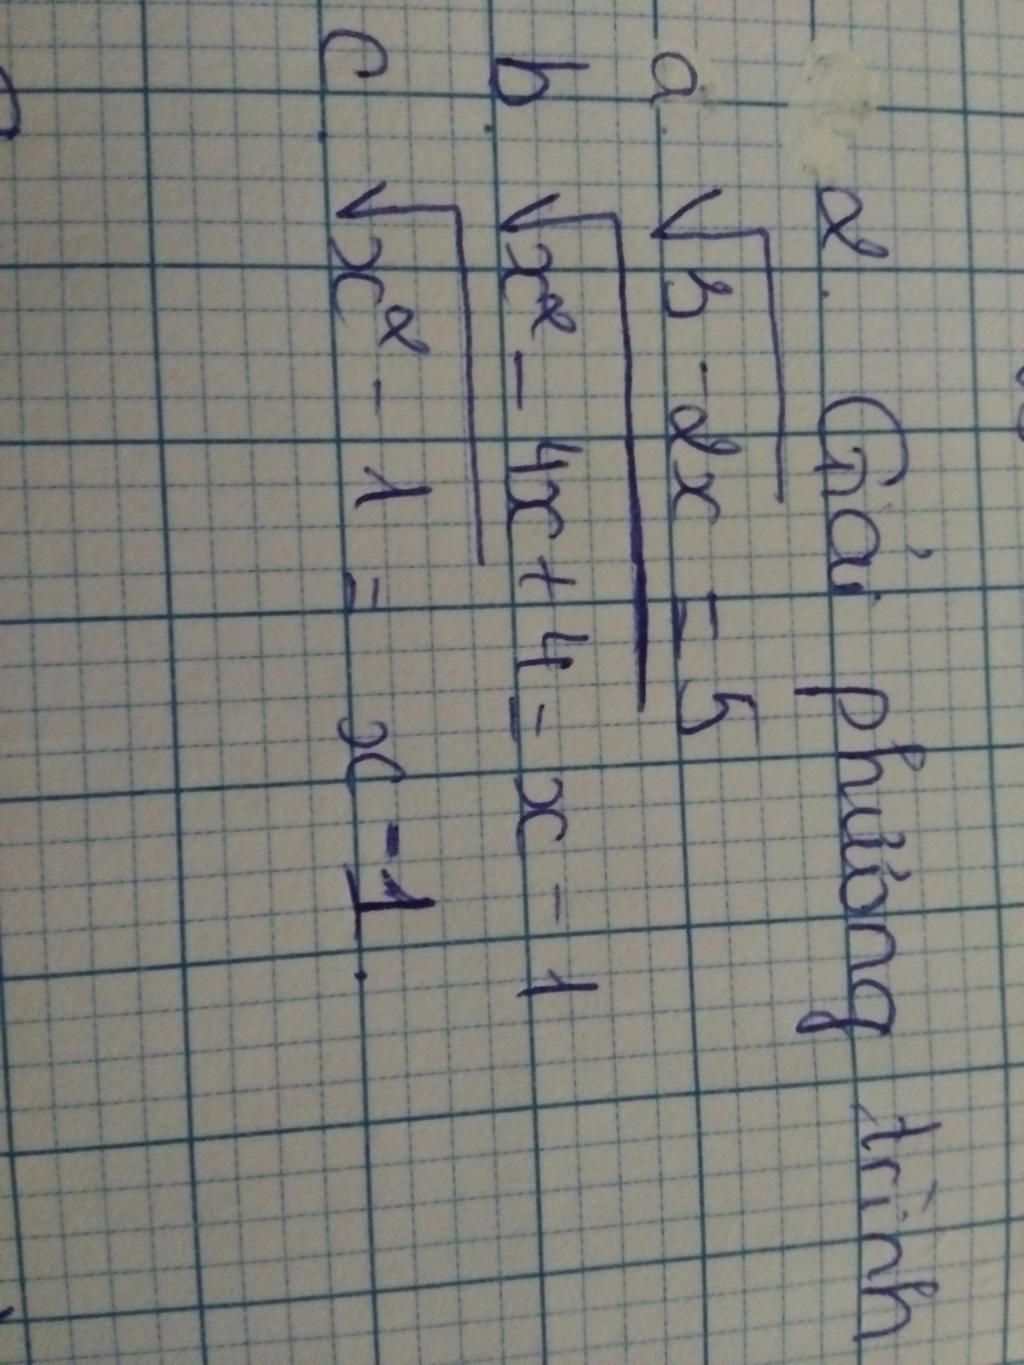 2. Giải phương trình
a. √3 - 2x = 5
b. √x² - 4x + 4 = x - 1
c. √x² - 1 = x - 1.